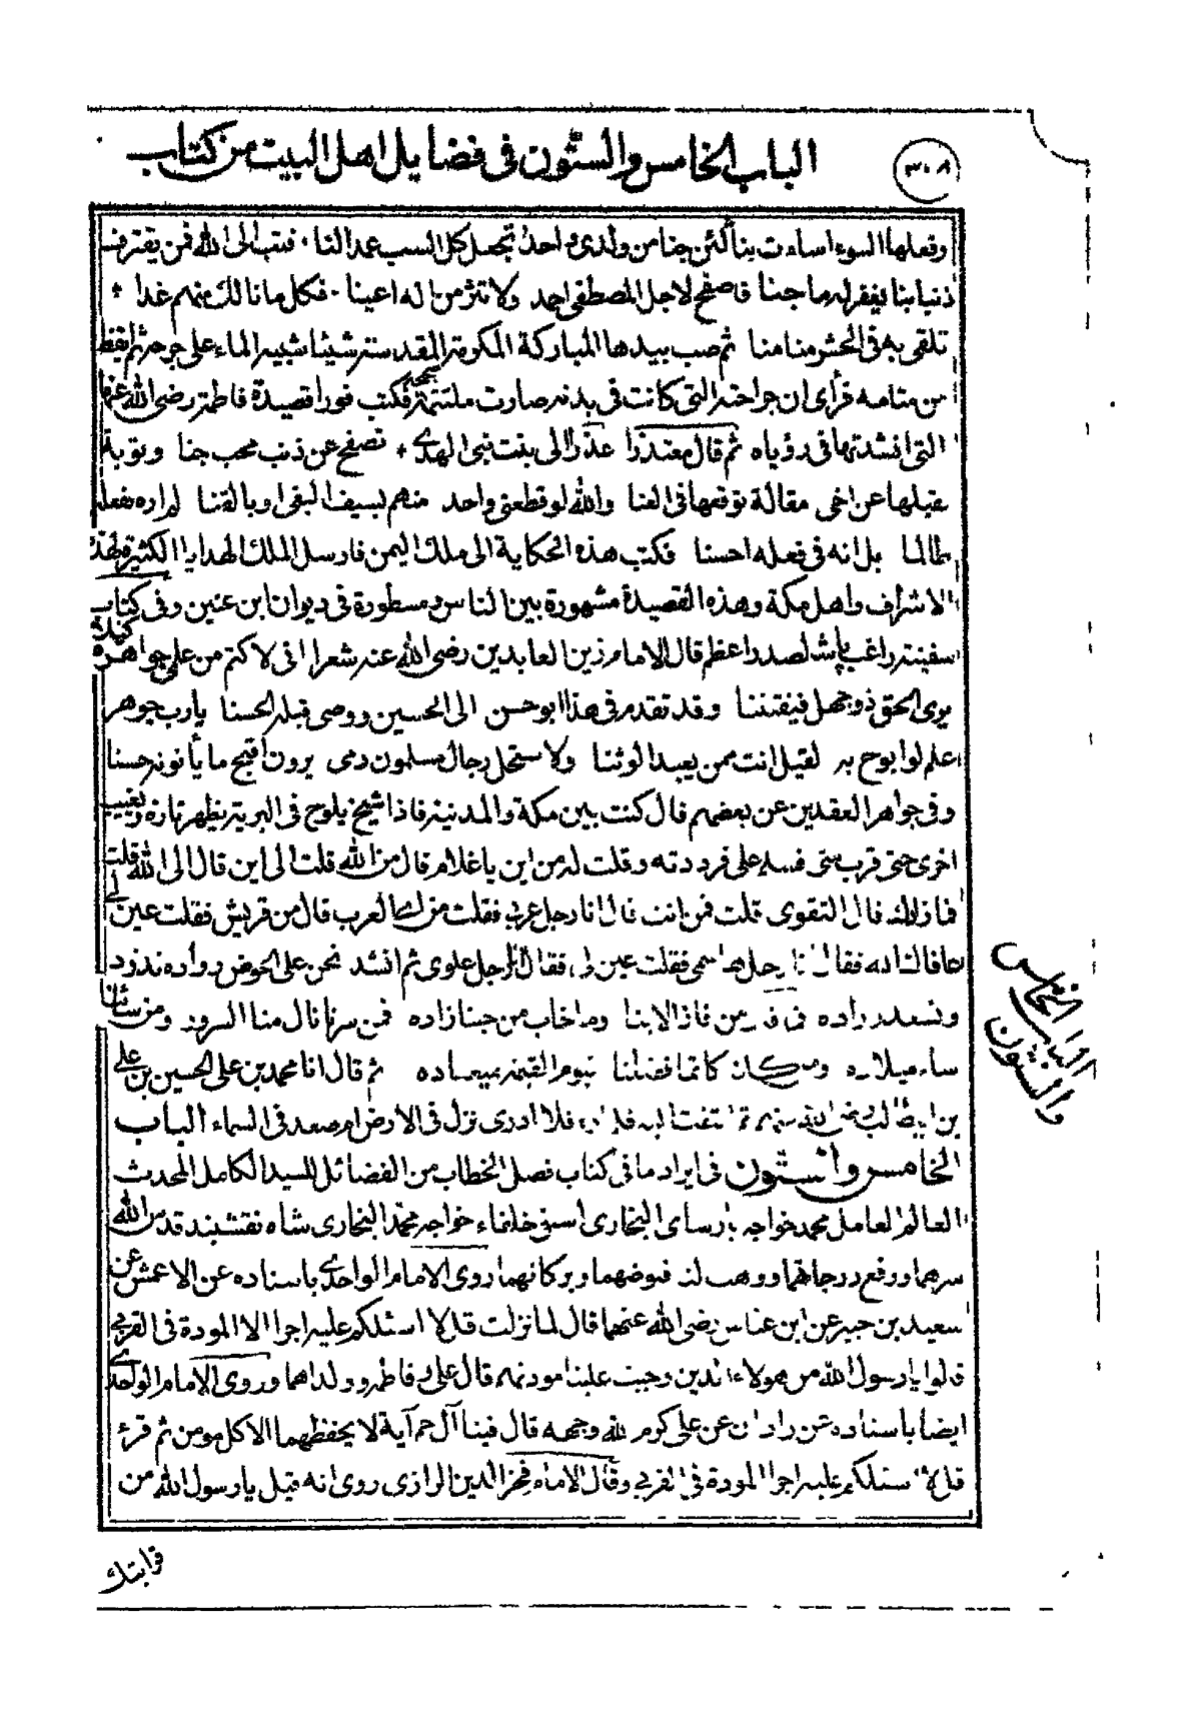 الباب الخامس والستون فى فضايل اهل البيت من كتاب
٣٠٨
وفعلها السوء اساءت بنا لئن جنا من ولدى واحد تجعل كل السب عمدا لنا فتب الى الله فمن يقترف
ذنبا بنا يغفر له ما جنا فاصفح لاجل المصطفى احمد ولا تثر من اله اعينا فكل ما نالك منهم غدا
تلقى به فى الحشر منا منا ثم صب بيدها المباركة المكرمة المقدسة شيئا شبيه الماء على جرحه ثم ايقظ
من منامه فرأى ان جراحته التى كانت فى بدنه صارت ملتئمة صحيحة فكتب فورا قصيدة فاطمة رضى الله عنها
التى انشدتها فى رؤياه ثم قال معتذرا عذرا الى بنت نبى الهدى تصفح عن ذنب محب جنا وتوبة
يقبلها عن اخى مقالة توقعها فى العنا والله لو قطعنى واحد منهم بسيف البغى او بالقنا لم اره بفعله
ظالما بل انه فى فعله احسنا فكتب هذه الحكاية الى ملك اليمن فارسل الملك الهدايا الكثيرة لهذه
الاشراف واهل مكة وهذه القصيدة مشهورة بين الناس ومسطورة فى ديوان ابن عنين وفى كتاب
سفينة راغب پاشا لصدر اعظم قال الامام زين العابدين رضى الله عنه شعرا انى لاكتم من علمى جواهره كيلا
يرى الحق ذو جهل فيفتننا وقد تقدم فى هذا ابو حسن الى الحسين ووصى قبله الحسنا يا رب جوهر
علم لو ابوح به لقيل انت ممن يعبد الوثنا ولاستحل رجال مسلمون دمى يرون اقبح ما يأتونه حسنا
وفى جواهر العقدين عن بعضهم قال كنت بين مكة والمدينة فاذا شيخ يلوح فى البرية يظهر تارة ويغيب
اخرى حتى قرب منى فسلم على فرددته وقلت له من اين يا غلام قال من الله قلت الى اين قال الى الله قلت
فما زادك قال التقوى قلت فمن انت قال انا رجل عربى فقلت من اى العرب قال من قريش فقلت عين لى
عافاك الله فقال انا رجل هاشمى فقلت عين لى فقال انا رجل علوى ثم انشد نحن على الحوض رواده نذود
ونسعد وراده فما فاز من فاز الا بنا وما خاب من حبنا زاده فمن سرنا نال منا السرور ومن سائنا
ساء ميلاده ومن كان كاتما فضلنا فيوم القيمة ميعاده ثم قال انا محمد بن على الحسين بن على
بن ابيطالب رضى الله عنهم ثم التفت اليه فلم اره فلا ادرى نزل فى الارض ام صعد فى السماء الباب
الخامس والستون فى ايراد ما فى كتاب فصل الخطاب من الفضائل للسيد الكامل المحدث
العالم العامل محمد خواجه پارساى البخارى اسبق خلفاء خواجه محمد البخارى شاه نقشبند قدس الله
سرهما ورفع درجاتهما ووهب لنا فيوضهما وبركاتهما روى الامام الواحدى باسناده عن الاعمش عن
سعيد بن جبير عن ابن عباس رضى الله عنهما قال لما نزلت قل لا اسئلكم عليه اجرا الا المودة فى القربى
قالوا يا رسول الله من هولاء الذين وجبت علينا مودتهم قال على وفاطمة وولداهما وروى الامام الواحدى
ايضا باسناده عن زادان عن على كرم الله وجهه قال فينا آل حم آية لا يحفظهما الا كل مومن ثم قرء
قل لا اسئلكم عليه اجرا الا المودة فى القربى وقال الامام فخر الدين الرازى روى انه قيل يا رسول الله من
قرابتك
الباب الخامس
والستون